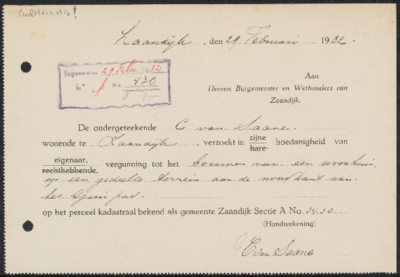 Zaandijk, den 29 Februari 1932
Aan
Heeren Burgemeester en Wethouders van
Zaandijk.
Ingekomen 29 Febr. 1932
No. 430
De ondergeteekende C van Saane
wonende te Zaandijk verzoekt in zijne hare hoedanigheid van
eigenaar, reeisthebbende, vergunning tot het bouwen van een woonhuis
op een gedeelte terrein aan de noordkant van
het Guispad
op het perceel kadastraal bekend als gemeente Zaandijk Sectie A No.
(Handteekening)
C van Saane